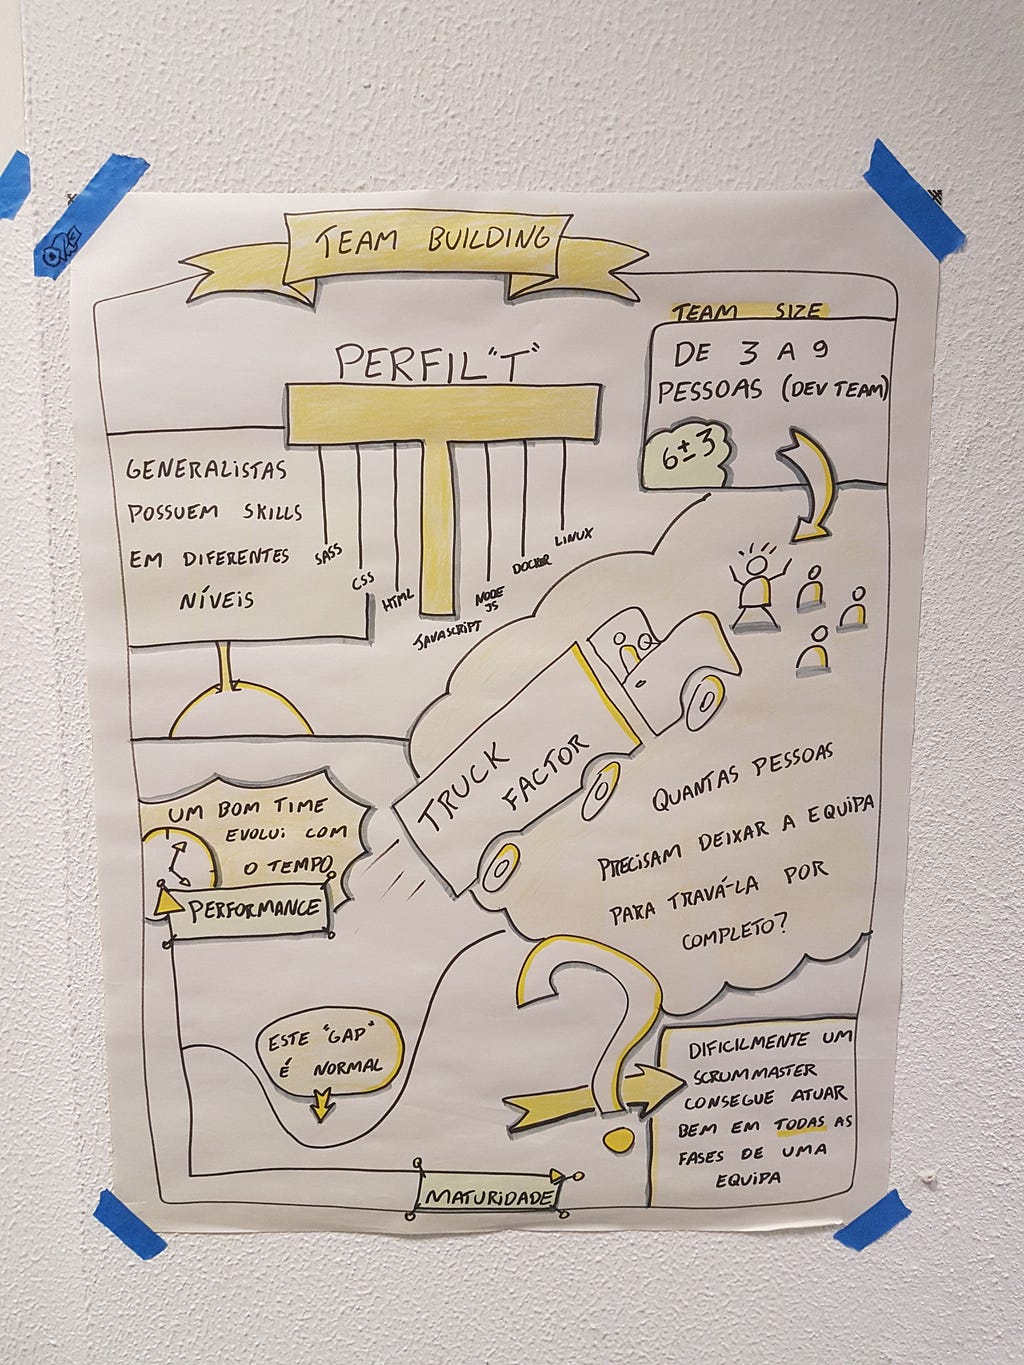 TEAM BUILDING
PERFIL "T"
TEAM SIZE
DE 3 A 9
PESSOAS (DEV TEAM)
6±3
GENERALISTAS
POSSUEM SKILLS
EM DIFERENTES
NÍVEIS
SASS
CSS
HTML
JAVASCRIPT
NODE
JS
DOCKER
LINUX
TRUCK
FACTOR
QUANTAS PESSOAS
PRECISAM DEIXAR A EQUIPA
PARA TRAVÁ-LA POR
COMPLETO?
UM BOM TIME
EVOLUI COM
O TEMPO
PERFORMANCE
ESTE "GAP"
É NORMAL
MATURIDADE
?
DIFICILMENTE UM
SCRUMMASTER
CONSEGUE ATUAR
BEM EM TODAS AS
FASES DE UMA
EQUIPA